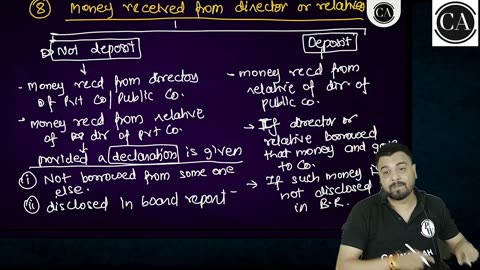 ⑧ Money received from director or relatives
CA
CA
Not deposit
Deposit
- Money recd from directors
of Pvt Co/Public Co.
- Money recd from relative
of dir of Pvt Co.
provided a declaration is given
(i) Not borrowed from some one
else.
(ii) disclosed in board report
- money recd from
relative of dir. of
public co.
→ If director or
relative borrowed
that money and
to Co.
→ If such money
not disclosed
in B.R.